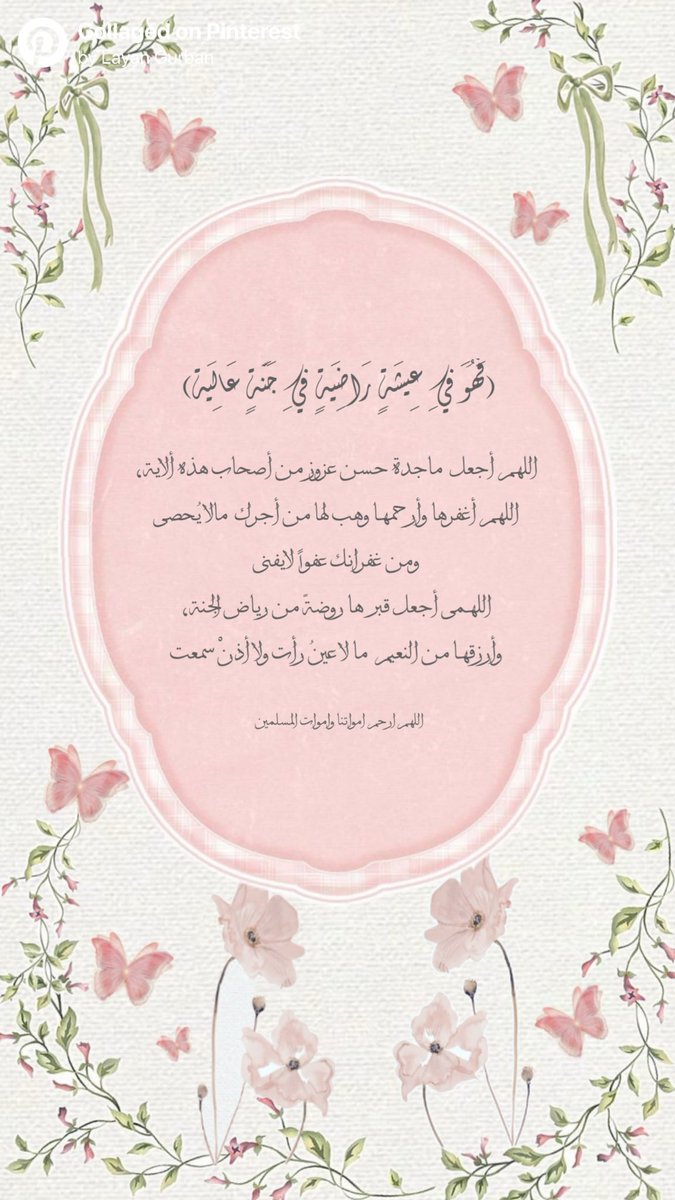 Collaged on Pinterest
by Layan Gurban
(فَهُوَ فِي عِيشَةٍ رَاضِيَةٍ فِي جَنَّةٍ عَالِيَة)
اللهم أجعل ماجدة حسن عزوز من أصحاب هذه ألاية،
اللهم أغفرها وأرحمها وهب لها من أجرك مالايُحصى
ومن غفرانك عفواً لايفنى
اللهمى أجعل قبر ها روضةً من رياض الجنة،
وأرزقها من النعيم ما لاعينُ رأت ولا أذنْ سمعت
اللهم ارحم امواتنا واموات المسلمين